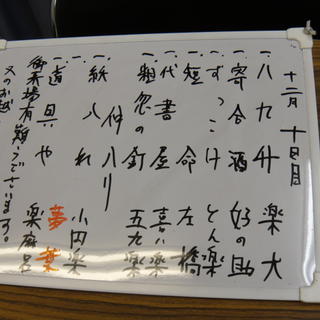 十二月 十四日
一.八九升 楽大
一.寄合酒 好の助
一.ずっこけ とん楽
一.短命 左橋
一.代書屋 喜い楽
一.粗忽の釘 五九楽
仲入り
一.紙入れ 小円楽
一.道具や 夢葉
楽麻呂
御来場有難うございます。
又のお越